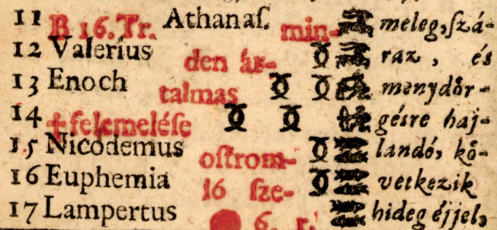 11 B 16. Tr. Athanaſ. min- meleg, ſzá-
12 Valerius den ár- raz, és
13 Enoch talmas menydör-
14 †felemeléſe géſre haj-
15 Nicodemus oſtrom- landó, kö-
16 Euphemia 16 ſze- vetkezik
17 Lampertus 6. r. hideg éjjel,